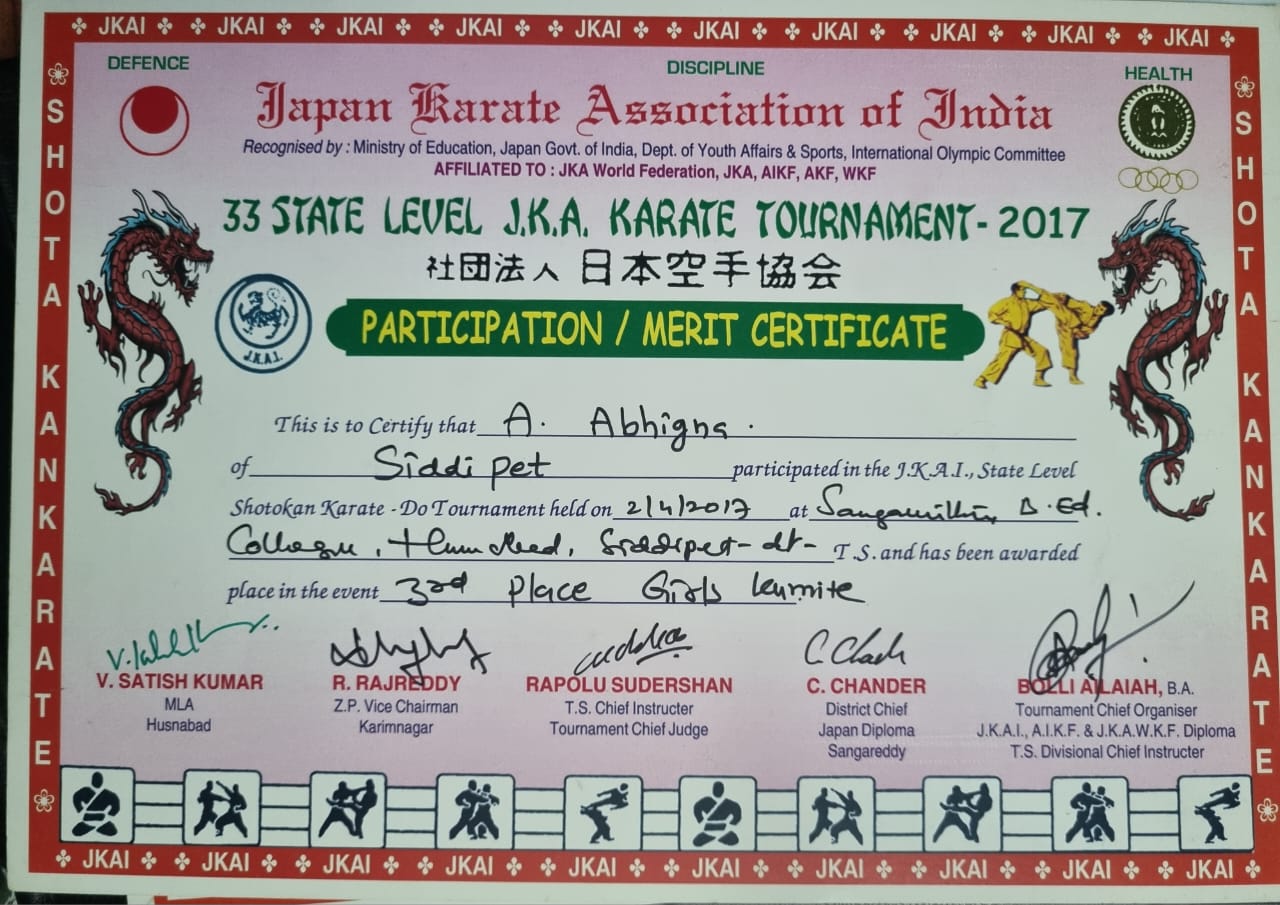 JKAI JKAI JKAI JKAI JKAI JKAI JKAI JKAI JKAI JKAI
SHOTA KANKARATE
SHOTA KANKARATE
DEFENCE
DISCIPLINE
HEALTH
Japan Karate Association of India
Recognised by : Ministry of Education, Japan Govt. of India, Dept. of Youth Affairs & Sports, International Olympic Committee
AFFILIATED TO : JKA World Federation, JKA, AIKF, AKF, WKF
33 STATE LEVEL J.K.A. KARATE TOURNAMENT- 2017
社団法人 日本空手協会
J.K.A.I.
PARTICIPATION / MERIT CERTIFICATE
This is to Certify that A. Abhigna .
of Siddipet participated in the J.K.A.I., State Level
Shotokan Karate - Do Tournament held on 2/4/2017 at B.Ed.
Siddipet-dt- T.S. and has been awarded
place in the event 3rd Place Girls kumite
V. SATISH KUMAR
MLA
Husnabad
R. RAJREDDY
Z.P. Vice Chairman
Karimnagar
RAPOLU SUDERSHAN
T.S. Chief Instructer
Tournament Chief Judge
C. CHANDER
District Chief
Japan Diploma
Sangareddy
BOLLI AILAIAH, B.A.
Tournament Chief Organiser
J.K.A.I., A.I.K.F. & J.K.A.W.K.F. Diploma
T.S. Divisional Chief Instructer
JKAI JKAI JKAI JKAI JKAI JKAI JKAI JKAI JKAI JKAI